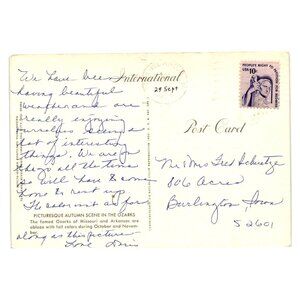 We have been
having beautiful
weather and are
really enjoying
ourselves seeing a
lot of interesting
things. We are on
the go all the time
so will have to come
home & rest up.
The colors not as far
along as this picture
Love Doris
International
29 Sept
PEOPLE'S RIGHT TO PETITION FOR REDRESS
USA 10c
Post Card
Mr & Mrs Fred Schultz
806 Acres
Burlington, Iowa
52601
PICTURESQUE AUTUMN SCENE IN THE OZARKS
The famed Ozarks of Missouri and Arkansas are
ablaze with fall colors during October and Novem-
ber.